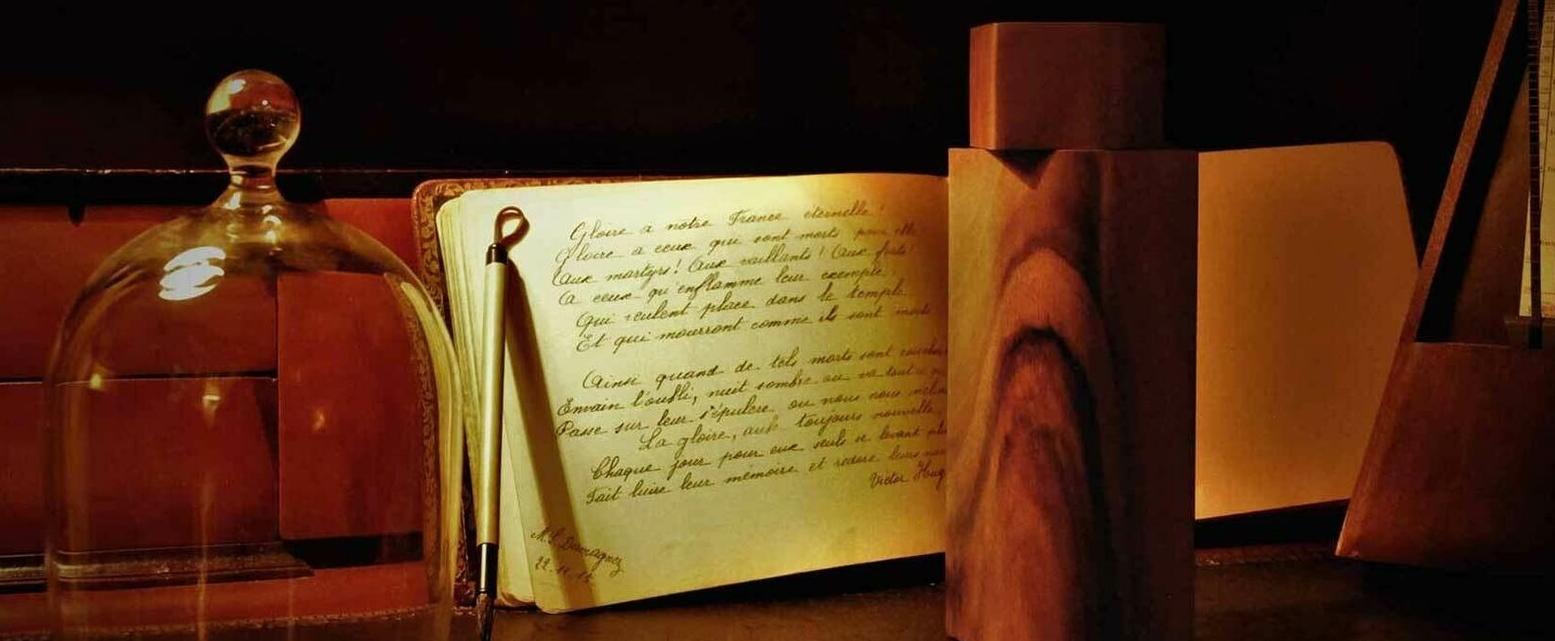 Gloire à notre France éternelle !
Gloire à ceux qui sont morts pour elle
Aux martyrs ! Aux vaillants ! Aux forts !
A ceux qu'enflamme leur exemple,
Qui veulent place dans le temple
Et qui mourront comme ils sont morts
Ainsi quand de tels morts sont couchés
Envain l'oubli, nuit sombre où va tout
Passe sur leur sépulcre où nous nous
La gloire, aube toujours nouvelle,
Chaque jour pour eux seuls se levant
Fait luire leur mémoire et redore leurs
Victor Hug
22.11.